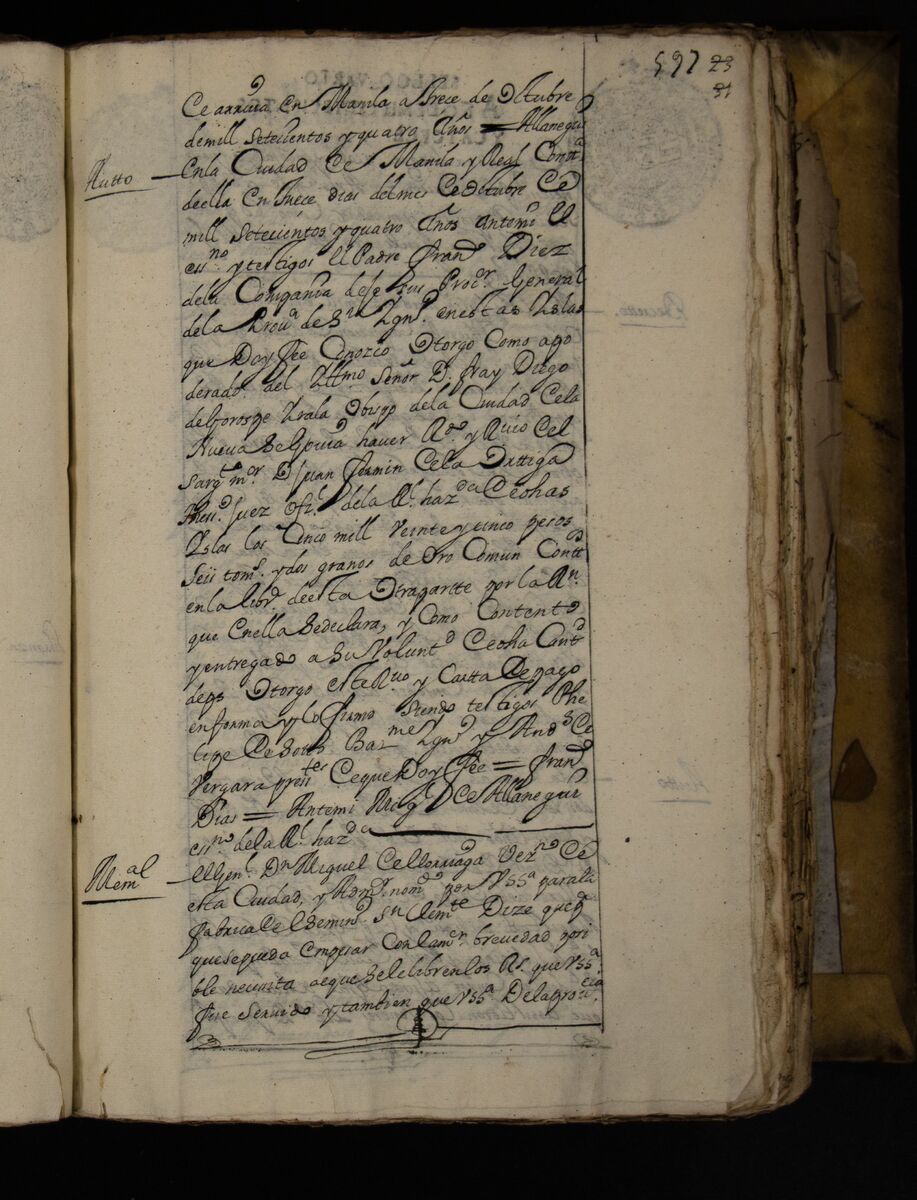 597 23
31
Ce arriva en Manila a trece de Octubre
demill setecientos y quatro Años = Allanegui
Autto
Enla Ciudad Ce Manila y Real Contta
deella en trece dias del mes Ce Octubre Ce
mill setecientos y quatro Años antemi el
essno y testigos el Padre Frand Diez
dela Compania de Jesus Procr General
dela Prova de Sn Ygns enestas Yslas
que Doy Fee Conozco Otorgo Como apo
derado del Illmo Señor D. fray Diego
de Ysala Obispo dela Ciudad Cela
Nueva Segovia haver Rdo y Ruio Cel
Sargto mor D Juan Fermin Cela Orttiga
Thesso Juez ofl dela Rl hazda Ceohas
Yslas los Cinco mill Veinte y cinco pesos
Seis toms y dos granos de Oro Comun Contdos
en la libr deesta Otraparte por la Rn
que enella Sedeclara, y Como Contento
y entregado a Su Voluntd Ceoha Contd
deps Otorgo este Ruo y Carta Depago
enforma y lo firmo Siendo testigos Phe
lipe De Sotto Barme Ygns y Ands Ce
Vergara presttes Ceque Doy Fee = Frand
Dias = Antemi Ce Allanegui
essno dela Rl hazda
Memal
El Genl Dn Miguel Ce Elorriaga Vezno Ce
esta Ciudad, y nomdo por VSSa para la
fabrica Cel Semino Sn Clemte Dize que pa
que se pueda empesar Con la mor brevedad posi
ble necesita aeque Se le libren los Rs que VSSa
fue Servido y tambien que VSSa Dela provcia